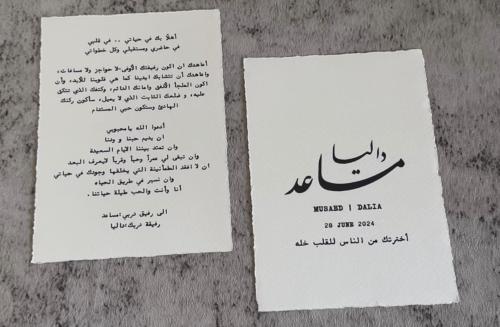 أهلاً بك في حياتي .. في قلبي
في حاضري ومستقبلي وكل خطواتي
أعاهدك ان اكون رفيقتك الأوفى،لا حواجز ولا مسافات،
واعاهدك أن تتشابك ايدينا كما هي قلوبنا للأبد، أن
اكون الملجأ الدافئ وامانك الدائم، وكتفك الذي تتكئ
عليه، و ضلعك الثابت الذي لا يميل، سأكون ركنك
الهادئ وستكون حبي المستدام
أدعوا الله يامحبوبي
ان يديم حبنا و ودنا
وان تمتد بيننا الأيام السعيدة
وان نبقى لي عمراً وحباً وقرباً لايعرف البعد
ان لا افقد الطمأنينة التي يخلقها وجودك في حياتي
وان نسير في طريق الحياه
أنا وأنت والحب طيلة حياتنا.
الى رفيق دربي:مساعد
رفيقة دربك:داليا
داليا
مساعد
MUSAED | DALIA
28 JUNE 2024
أخترتك من الناس للقلب خله